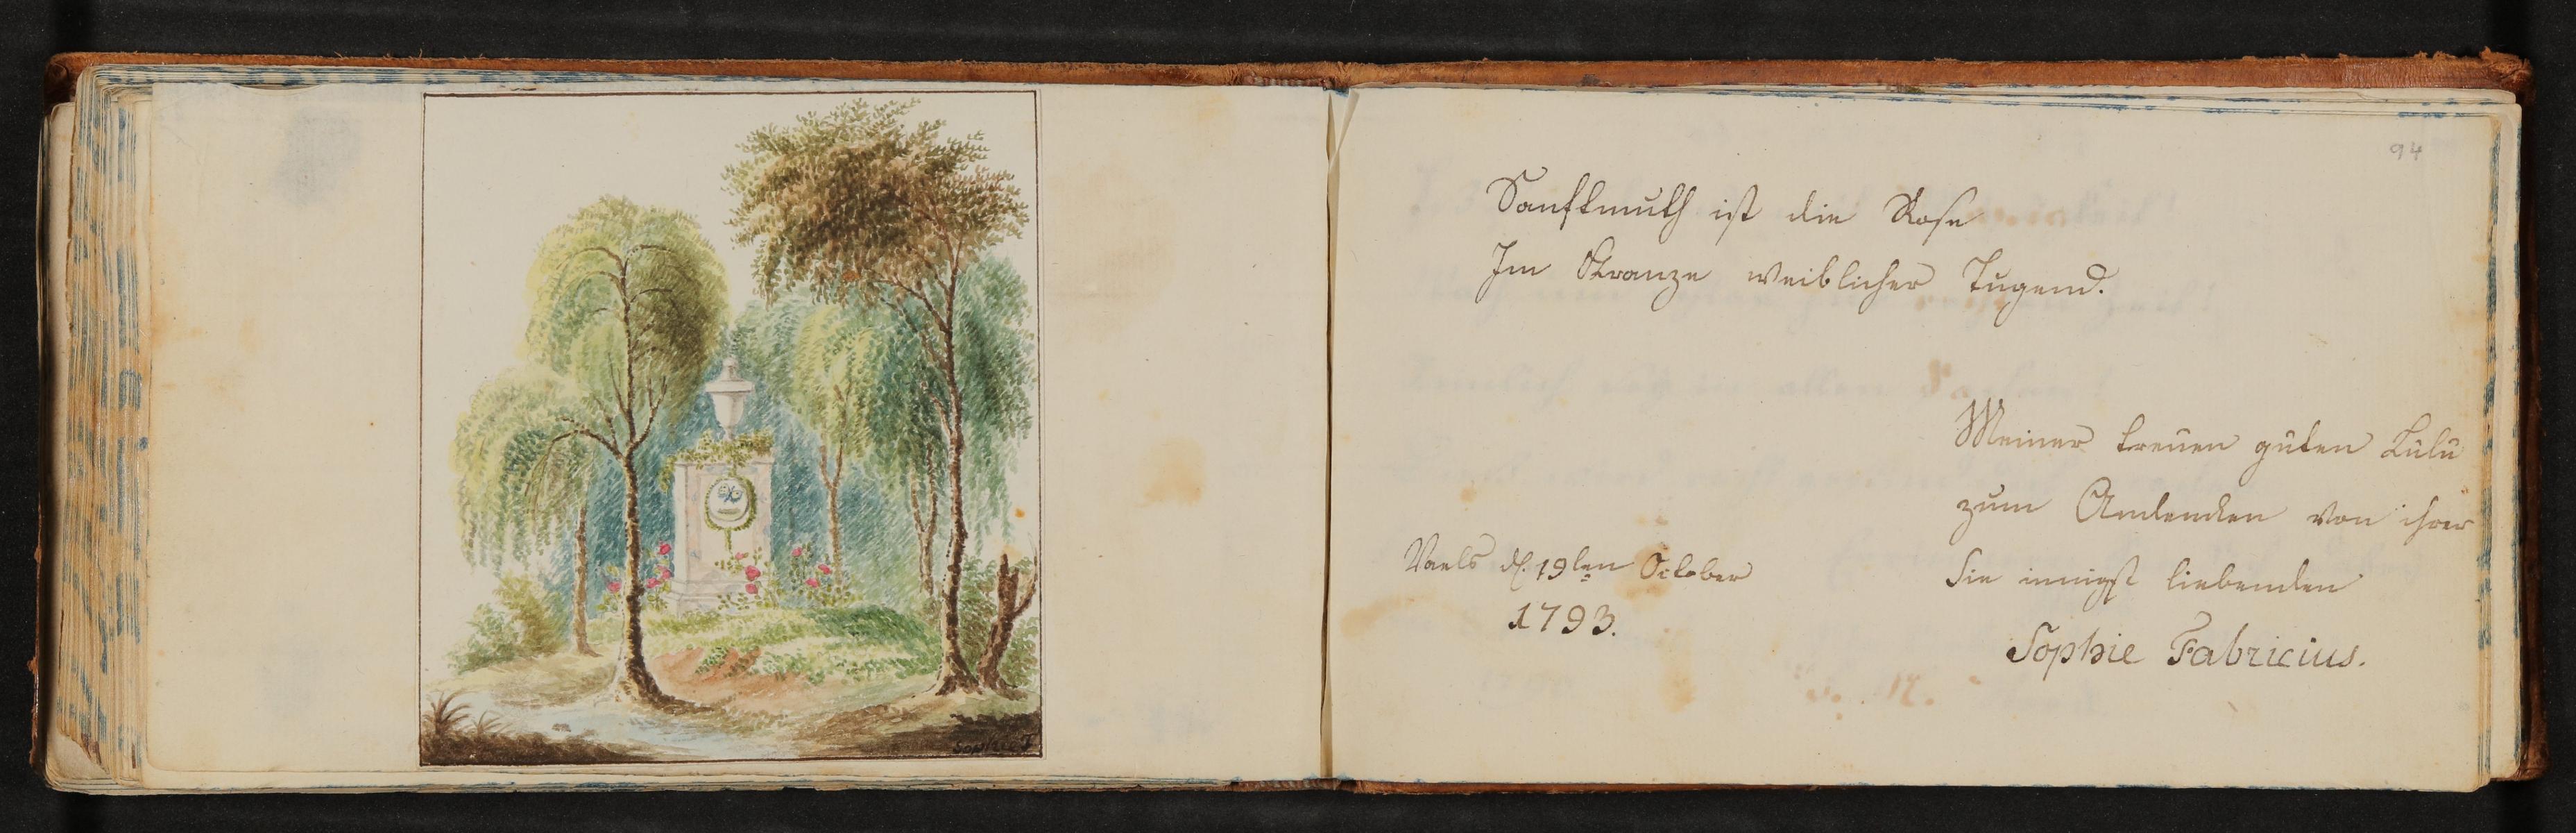 Sophie F
94
Sanftmuth ist die Rose
Im Kranze weiblicher Tugend.
Meiner treuen guten Lulu
zum Andenken von ihrer
Sie innigst liebenden
Sophie Fabricius.
Vaels d. 19ten October
1793.